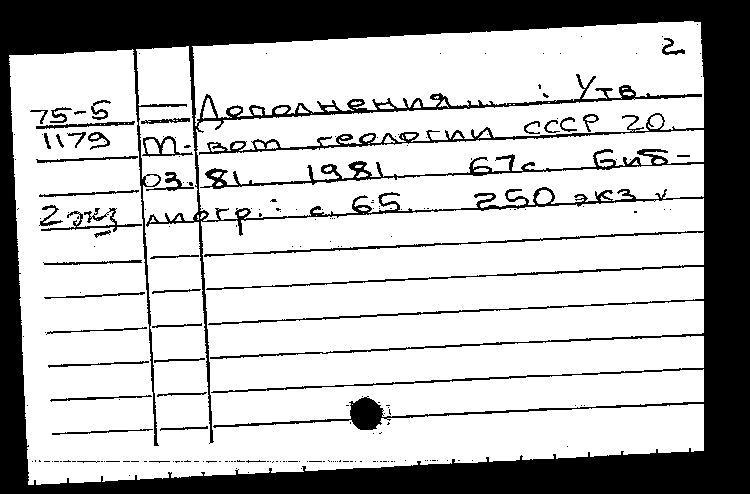 2
75-5 — Дополнения ... : Утв.
1179 М-вом геологии СССР 20.
03.81. 1981. 67с. Биб-
2 экз лиогр.: с. 65. 250 экз